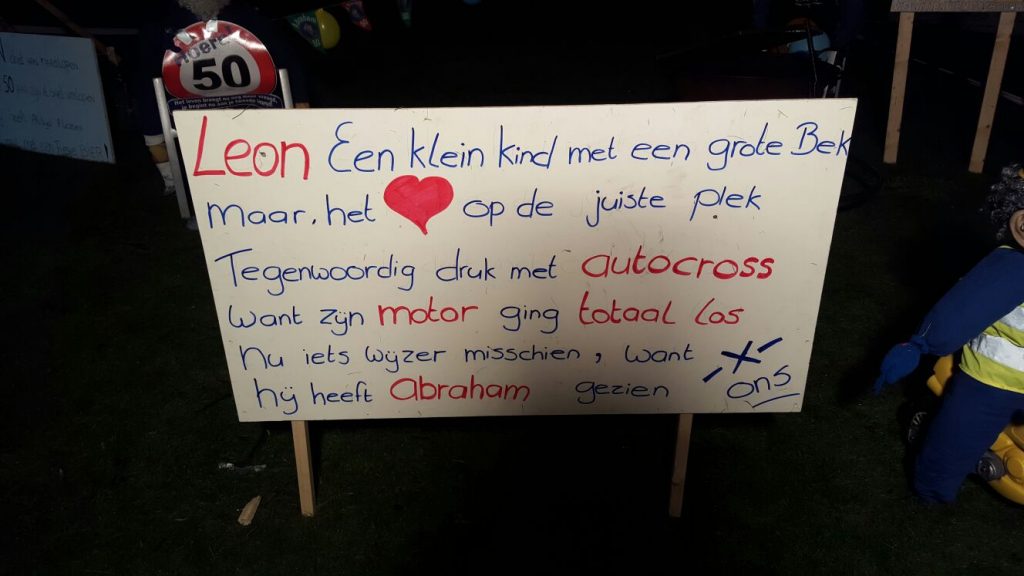 50
Leon Een klein kind met een grote Bek
maar, het op de juiste plek
Tegenwoordig druk met autocross
Want zijn motor ging totaal los
Nu iets wijzer misschien, want
hij heeft Abraham gezien
ons